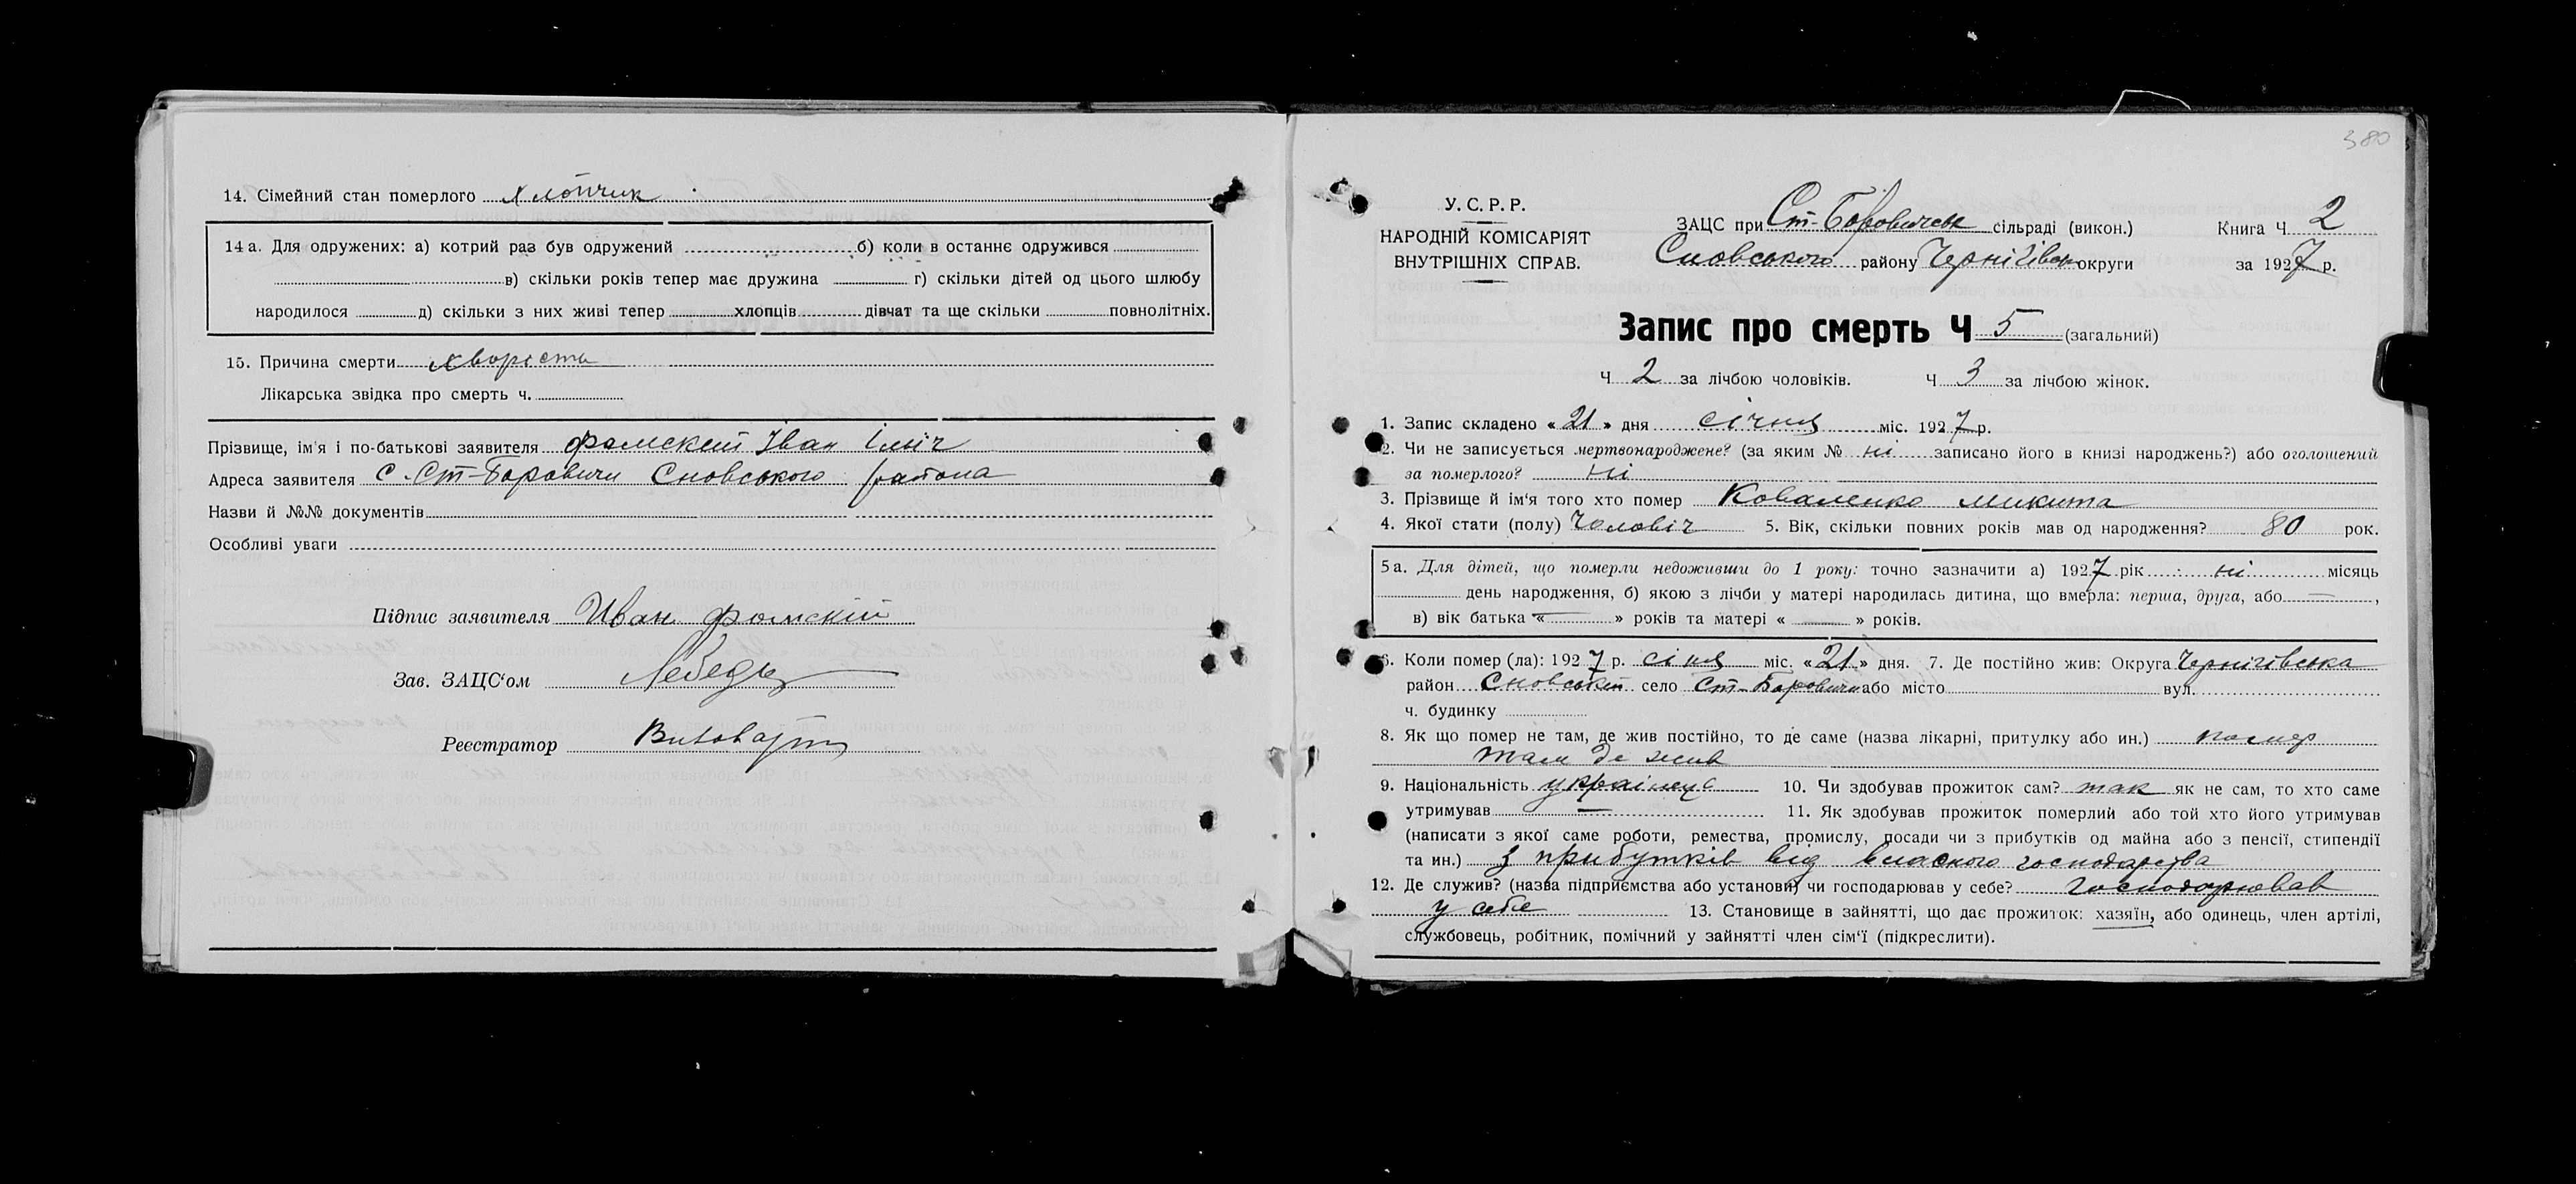 14. Сімейний стан померлого хлопчик
14 а. Для одружених: а) котрий раз був одружений б) коли в останнє одружився
в) скільки років тепер має дружина г) скільки дітей од цього шлюбу
народилося д) скільки з них живі тепер хлопців дівчат та ще скільки повнолітніх.
15. Причина смерти хворіста
Лікарська звідка про смерть ч.
Прізвище, ім'я і по-батькові заявителя Фомский Іван Ілліч
Адреса заявителя с. Ст-Боровичи Сновського района
Назви й №№ документів
Особливі уваги
Підпис заявителя Иван Фомский
Зав. ЗАЦС'ом Лебедь
Реєстратор
380
У. С. Р. Р.
НАРОДНІЙ КОМІСАРІЯТ
ВНУТРІШНІХ СПРАВ.
ЗАЦС при Ст-Боровичськ сільраді (викон.) Книга Ч 2
Сновського району Чернігівськ округи за 1927 р.
Запис про смерть Ч 5 (загальний)
Ч 2 за лічбою чоловіків. Ч 3 за лічбою жінок.
1. Запис складено « 21 » дня січня міс. 1927 р.
2. Чи не записується мертвонароджене? (за яким № ні записано його в книзі народжень?) або оголошений
за померлого? ні
3. Прізвище й ім'я того хто помер Коваленко Микита
4. Якої стати (полу) Чоловіч 5. Вік, скільки повних років мав од народження? 80 рок.
5 а. Для дітей, що померли недоживши до 1 року: точно зазначити а) 1927 рік ні місяць
день народження, б) якою з лічби у матері народилась дитина, що вмерла: перша, друга, або — ,
в) вік батька « — » років та матері « » років.
6. Коли помер (ла): 1927 р. січня міс. «21» дня. 7. Де постійно жив: Округа Чернігівська
район Сновський село Ст-Боровичи або місто вул.
ч. будинку
8. Як що помер не там, де жив постійно, то де саме (назва лікарні, притулку або ин.) помер
там де жив
9. Національність українець 10. Чи здобував прожиток сам? так як не сам, то хто саме
утримував — 11. Як здобував прожиток померлий або той хто його утримував
(написати з якої саме роботи, ремества, промислу, посади чи з прибутків од майна або з пенсії, стипендії
та ин.) з прибутків від власного господарства
12. Де служив? (назва підприємства або установи) чи господарював у себе? господарював
у себе 13. Становище в зайнятті, що дає прожиток: хазяїн, або одинець, член артілі,
службовець, робітник, помічний у зайнятті член сім'ї (підкреслити).